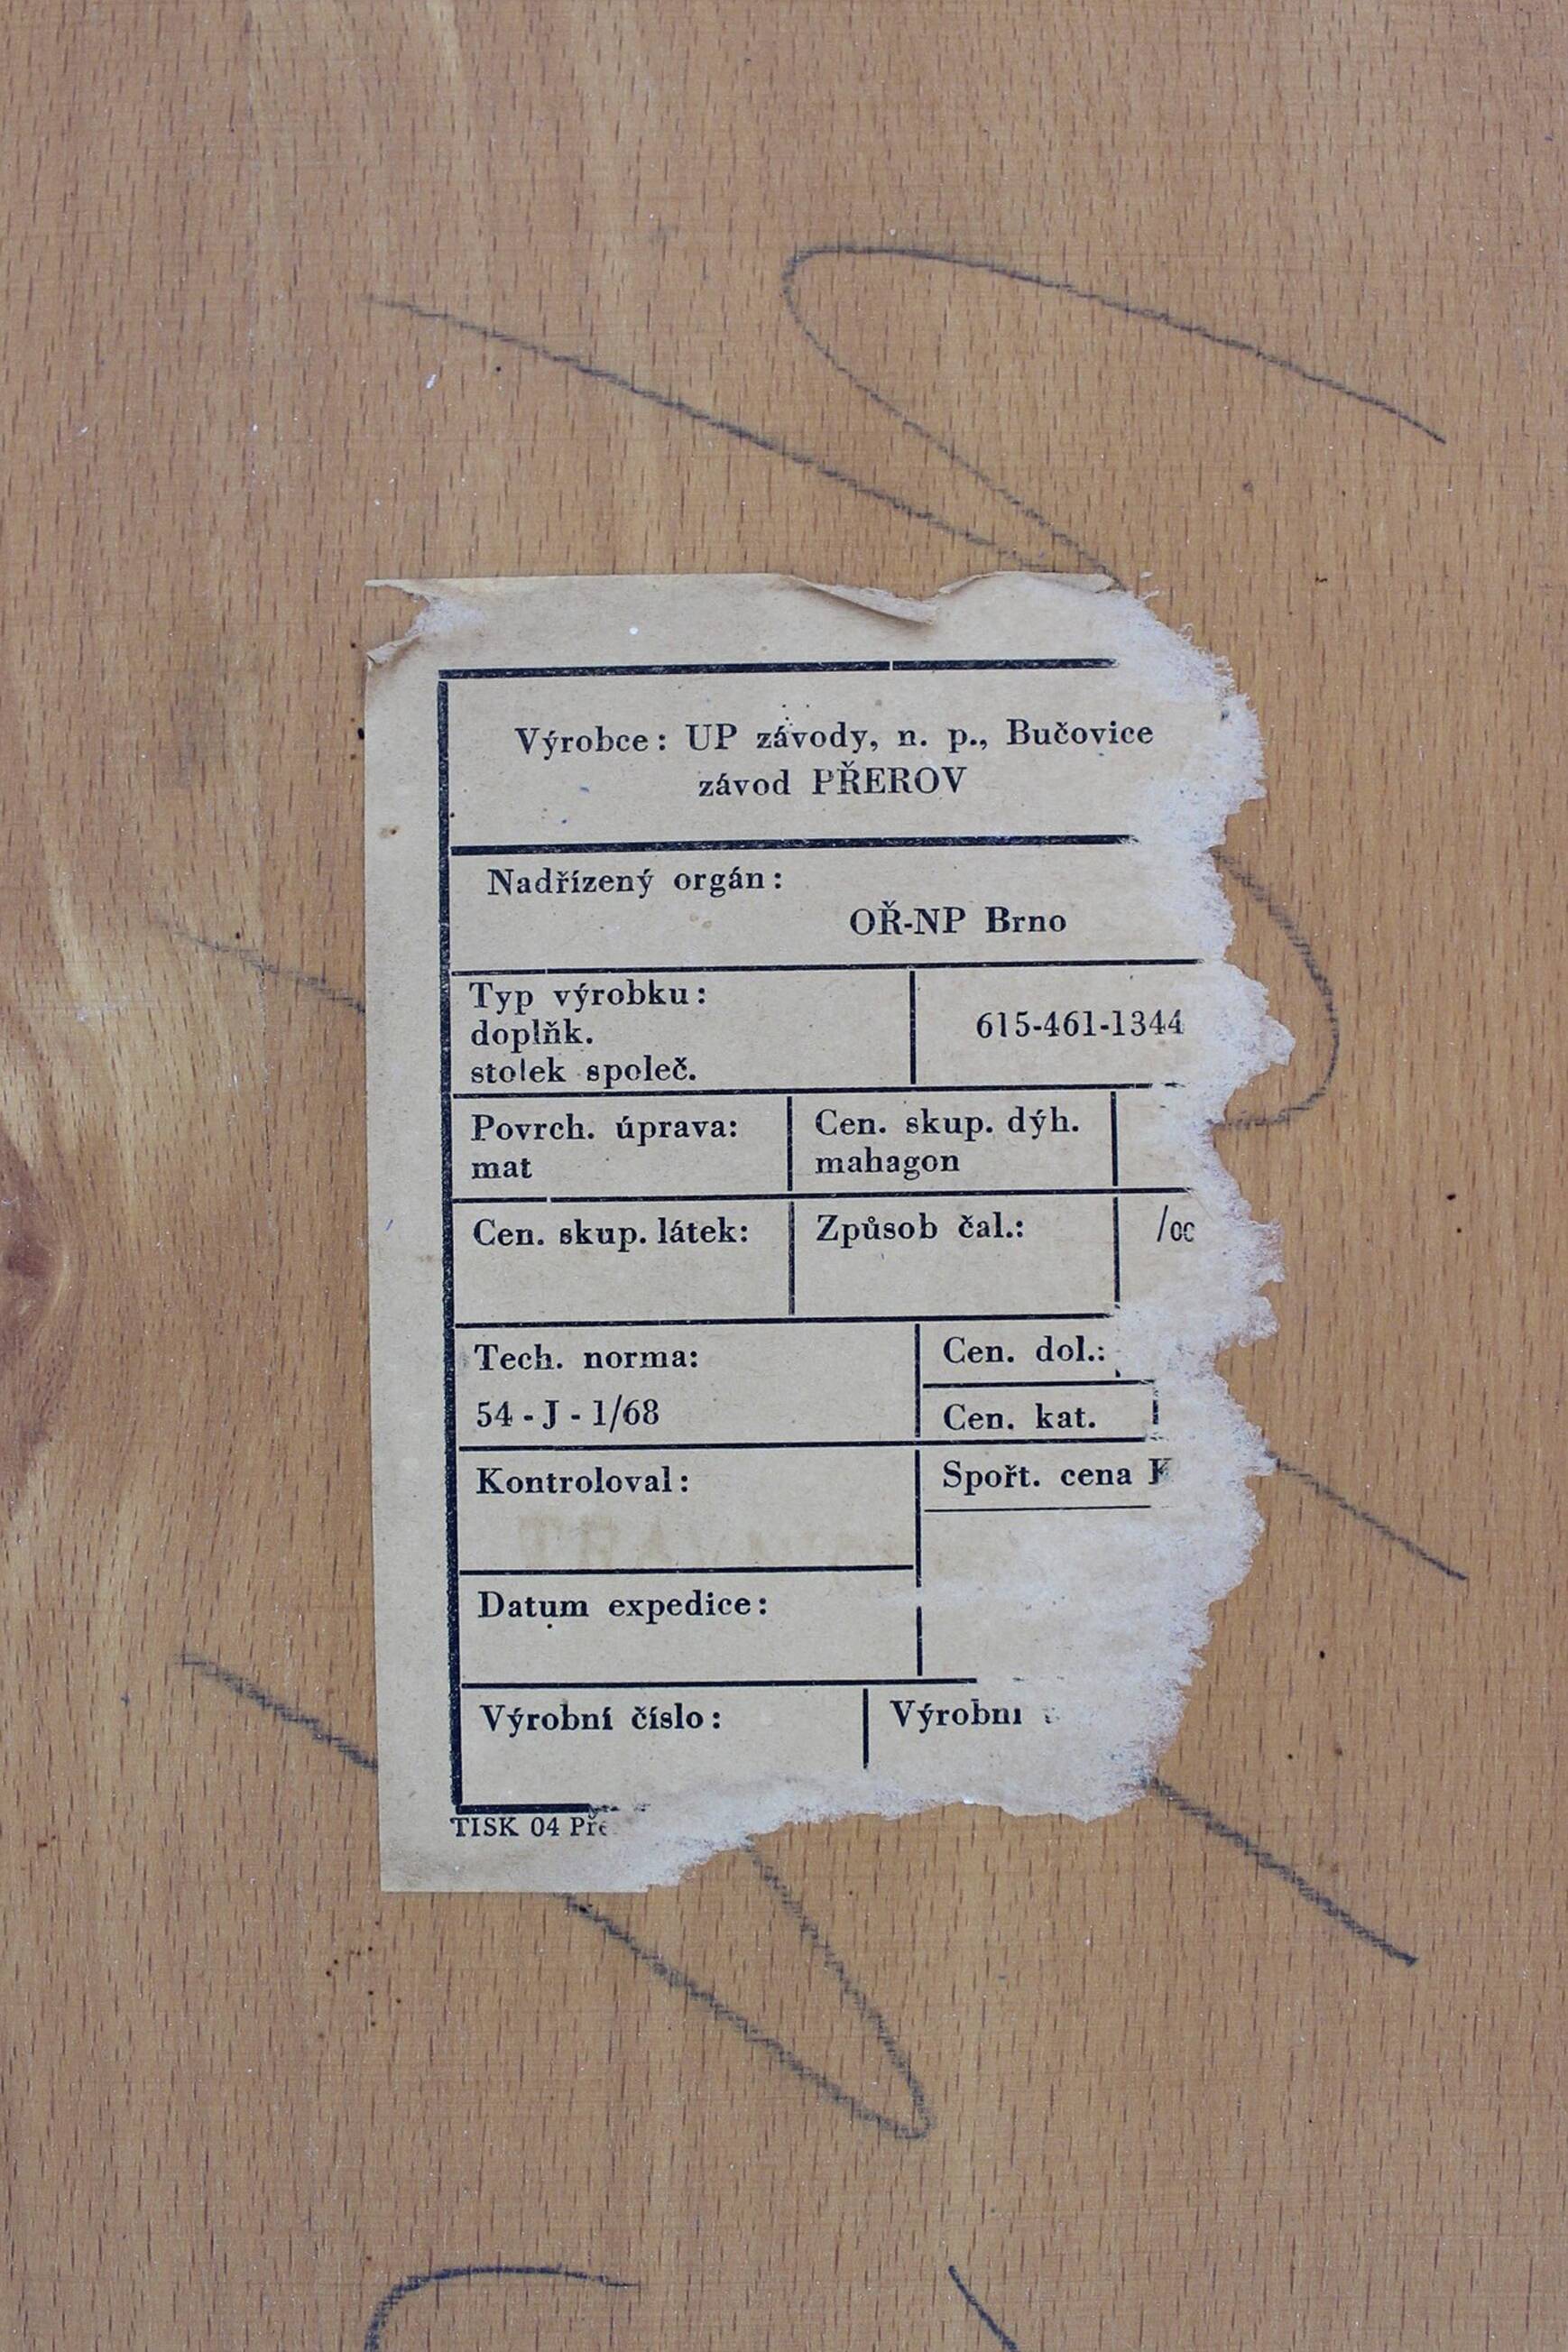 Výrobce: UP závody, n. p., Bučovice
závod PŘEROV
Nadřízený orgán:
OŘ-NP Brno
Typ výrobku:
doplňk.
stolek společ.
615-461-1344
Povrch. úprava:
mat
Cen. skup. dýh.
mahagon
Cen. skup. látek:
Způsob čal.:
Tech. norma:
54 - J - 1/68
Cen. dol.:
Cen. kat.
Kontroloval:
Spořt. cena
Datum expedice:
Výrobní číslo:
Výrobní
TISK 04